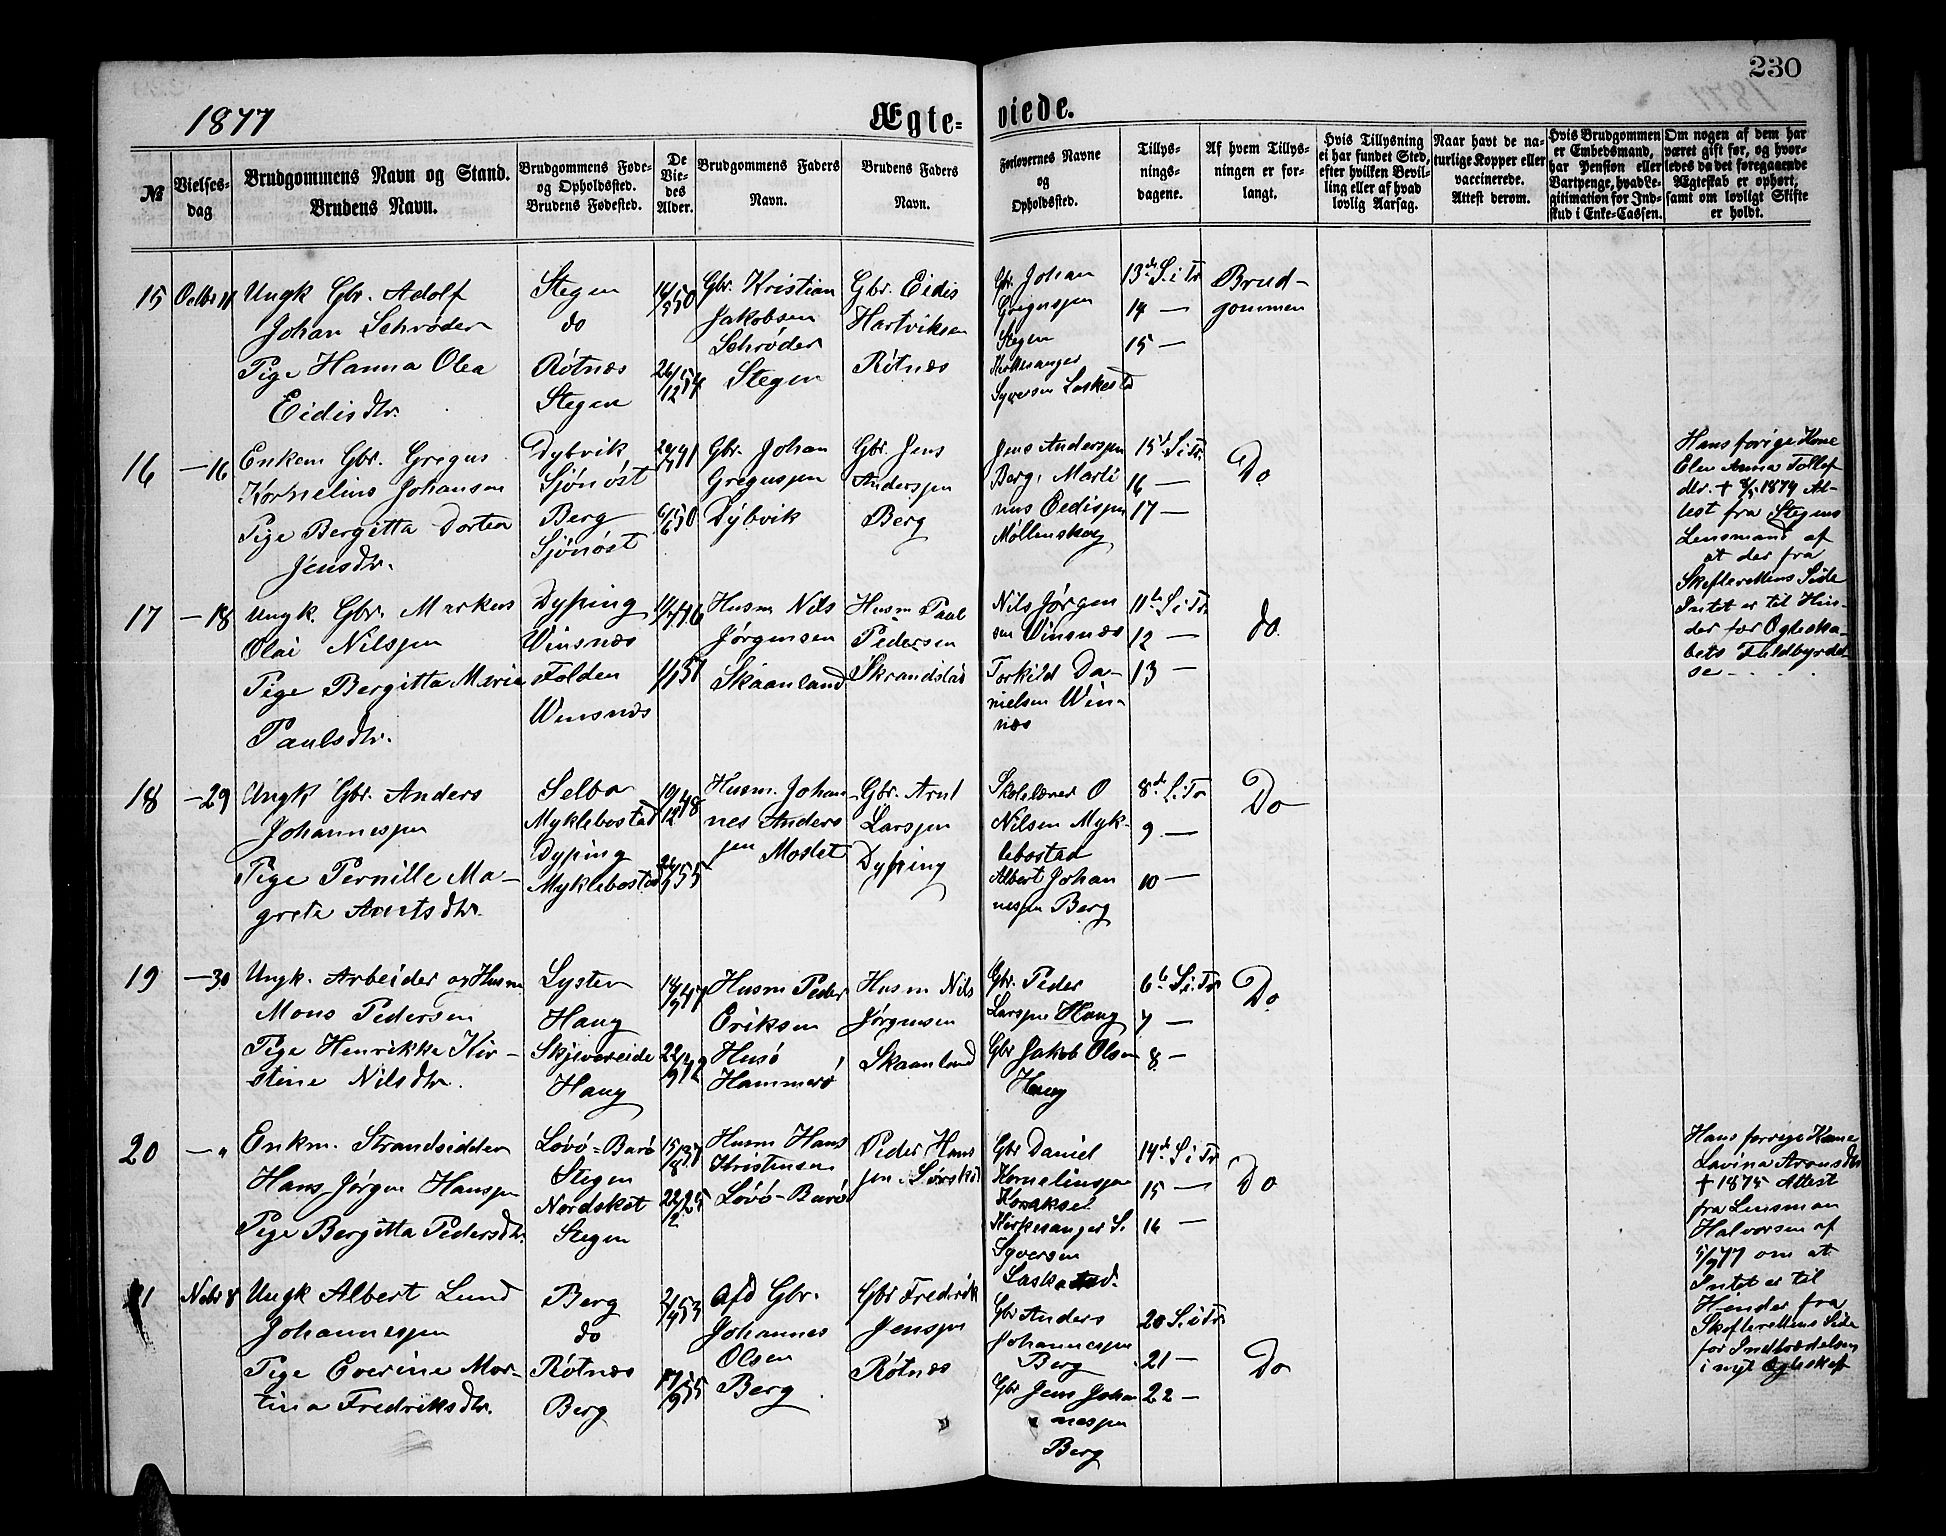 230
1877
Ægte- viede.
№
Vielses-dag
Brudgommens Navn og Stand.
Brudens Navn.
Brudgommens Føde- og Opholdssted.
Brudens Fødested.
De Viedes Alder.
Brudgommens Faders Navn.
Brudens Faders Navn.
Forlovernes Navne og Opholdssted.
Tillysningsdagene.
Af hvem Tillysningen er forlangt.
Hvis Tillysning ei har fundet Sted, efter hvilken Bevilling eller af hvad lovlig Aarsag.
Naar havt de naturlige Kopper eller vaccinerede. Attest derom.
Hvis Brudgommen er Embedsmand, har Pension eller Vartpenge, hvad Legitimation for Indskud i Enke-Cassen.
Om nogen af dem har været gift før, og hvorledes da det foregaaende Ægteskab er ophørt, samt om lovligt Skifte er holdt.
15
Octbr 11
Ungk Gbr. Adolf
Johan Schrøder
Pige Hanna Olea
Eidisdtr.
Stegen
do
Røtnæs
Stegen
26/12 54
Gbr. Kristian
Jakobsen
Schrøder
Stegen
Gbr. Eidis
Hartviksen
Røtnæs
Gbr. Johan
Gregussen
Stegen
Kirkesanger
Syversen Laskestad
13de S. i Tr
14 —
15 —
Brud-
gommen
16
— 16
Enkem Gbr. Gregus
Kornelius Johansen
Pige Bergitta Dortea
Jensdtr.
Dybvik
Sjönöst
Berg
Sjönöst
Gbr. Johan
Gregussen
Dybvik
Gbr. Jens
Anderssen
Berg
Jens Anderssen
Berg, Marti
nus Eedissen
Möllenskog
15d S i Tr.
16 —
17 —
Do
Hans forige Kone
Elen Anna Tollef
dtr. + 1874 At-
test fra Stegens
Lensmand af
at der fra
Skifterettens Side
Intet er til Hin-
der for Ægteska-
bets Fuldbyrdel
se
17
— 18
Ungk. Gbr. Markus
Olai Nilssen
Pige Bergitta Marie
Paulsdtr.
Dyping
Winsnæs
Folden
Winsnæs
Husm Nils
Jørgensen
Skaanland
Husm Paul
Pedersen
Skrandstad
Nils Jørgen
sen Winsnæs
Torkild Da-
nielsen Win-
næs
11te S i Tr
12 —
13 —
do.
18
— 29
Ungk Gbr. Anders
Johannessen
Pige Pernille Ma-
grete Arntsdtr.
Selbo
Myklebostad
Dyping
Myklebostad
19/12 48
Husm. Johan
nes Anders
sen Moslet
Gbr. Arnt
Larssen
Dyping
Skolelærer O
Nilsen Myk-
lebostad
Albert Johan
nessen Berg
8de S. i Tr
9 —
10 —
Do
19
— 30
Ungk. Arbeider og Husm
Mons Pedersen
Pige Henrikke Kir-
stine Nilsdtr.
Lyster
Haug
Skjevareide
Haug
Husm Peder
Eriksen
Husö
Hammerö
Husm Nils
Jørgensen
Skaanland
Gbr. Peder
Larssen Haug
Gbr Jakob Olsen
Haug
6te S. i. Tr
7 —
8 —
Do
20
— "
Enkm. Strandsidder
Hans Jörgen Hanssen
Pige Bergitta Pedersdtr.
Lövö=Barö
Stegen
Nordsköt
Stegen
22/2 25
Husm Hans
Kristensen
Lövö=Barö
Peder Hans
sen Sörsköt
Gbr Daniel
Korneliussen
Kirkesanger S.
Syversen
Laskestad.
14de S i Tr
15 —
16 —
Do
Hans forrige Kone
Lavina Arensdtr
+ 1875 Attest
fra Lensman
Halvorsen af
5/9 77 om at
Intet er til
Hinder fra
Skifterettens Side
for Indtrædelsen
i nyt Ægteskab
Novbr 8
Ungk Albert Lund
Johannessen
Pige Everine Mar-
tina Fredriksdtr.
Berg
do
Røtnæs
Berg
Afd Gbr.
Johannes
Olsen
Berg
Gbr Fredrik
Jenssen
Røtnæs
Gbr Anders
Johannessen
Berg
Gbr Jens Johan
nessen
Berg
20 S. i Tr.
21 —
22 —
Do